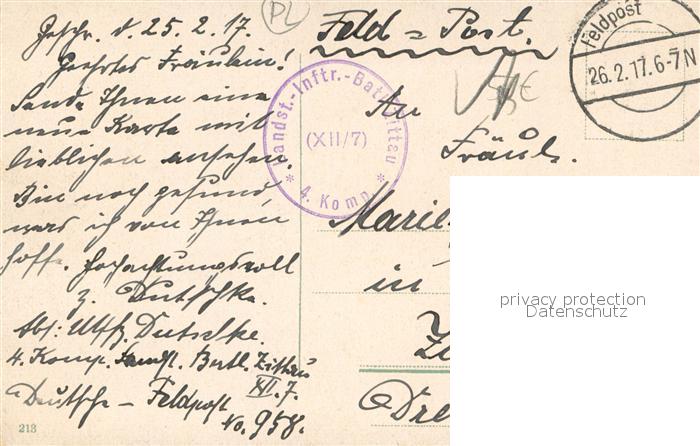 Geschr. d. 25.2.17.
Geehrtes Fräulein!
Sende Ihnen eine
neue Karte mit
lieblichen ansehen.
Bin noch gesund,
was ich von Ihnen
hoffe. Hochachtungsvoll
z. Dutschke.
Abs: Uffz. Dutschke.
4. Komp. Landst. Batl. Zittau
XII. 7.
Deutsche - Feldpost
No. 958.
213
PL
Feld = Post.
Landst.-Inftr.-Batl. Zittau
(XII/7)
* 4. Komp. *
Feldpost
26.2.17.6-7N
An
Fräul.
Marie
in
Dre
privacy protection
Datenschutz